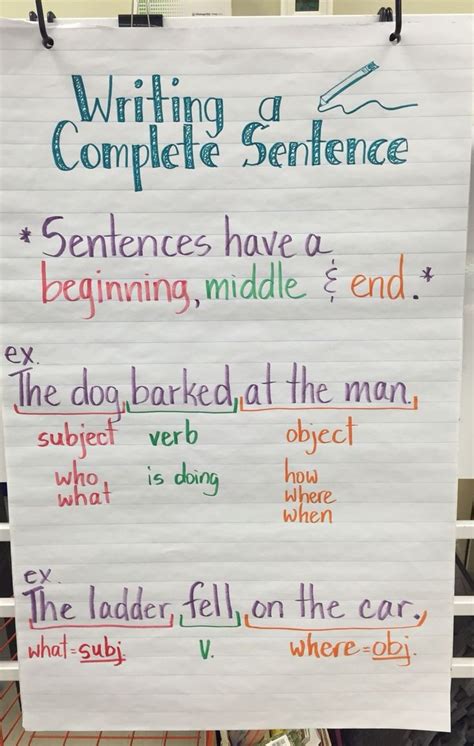 Writing a
Complete Sentence
*Sentences have a
beginning, middle & end.*
ex.
The dog, barked, at the man.
subject verb object
who is doing how
what where
when
ex.
The ladder, fell, on the car.
what=subj. V. where=obj.